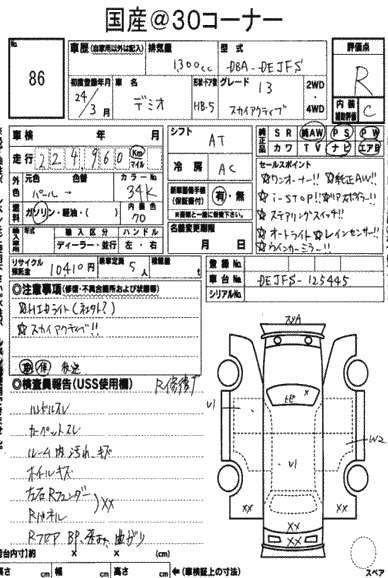 国産@30コーナー
No. 86
車歴 (自家用以外は記入) 排気量 1300cc 型式 DBA-DEJFS
初度登録年月 24年 3月 車名 デミオ 形状・ドア数 HB-5 グレード 13 スカイアクティブ 2WD・4WD
評価点 R
内装 補助評価 C
車検 年 月
走行 224960 Km マイル
外色 元色 パール 色替 → カラーNo. 34K
燃料 ガソリン・軽油・( ) 内装色 70
輸入車 輸入区分 ディーラー・並行 ハンドル 左・右
シフト AT
冷房 AC
新車整備手帳 (保証書付) 有・無
※商談と一緒に御提出下さい。
名義変更期限 月 日
純正品 SR 純AW PS PW
カワ TV ナビ エアB
セールスポイント
☆ワンオーナー!! ☆純正AW!!
☆i-STOP!!
☆ステアリングスイッチ!!
☆オートライト☆レインセンサー!!
☆ウインカーミラー!!
リサイクル預託金 10410円 乗車定員 5人 積載量 t
登録No.
車台No. DEJFS-125445
シリアルNo.
◎注意事項 (修復・不具合箇所および状態等)
☆HIDライト
☆スカイアクティブ!!
取 保 後送
◎検査員報告 (USS使用欄) R修復有
ハンドルスレ
カーペットスレ
ルーム内汚れ、キズ
ホイールキズ
左右Rフェンダー XX
Rパネル
Rフロア BP、歪み、曲がり
スリA
トビ
U1
U1
W2
XX
XX XX
荷台内寸) × × (cm)
高さ cm 幅 cm 高さ cm ←(車検証上の寸法)
スペア